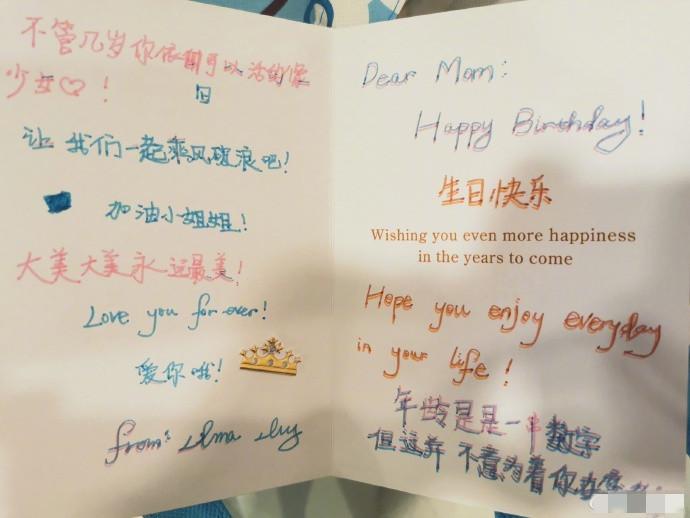 不管几岁你依旧可以活的像
少女♡！
旧
让我们一起乘风破浪吧！
加油小姐姐！
大美大美永远最美！
Love you for ever!
爱你哦！
from:
Dear Mom:
Happy Birthday!
生日快乐
Wishing you even more happiness
in the years to come
Hope you enjoy everyday
in your life!
年龄是是一串数字
但这并不意为着你